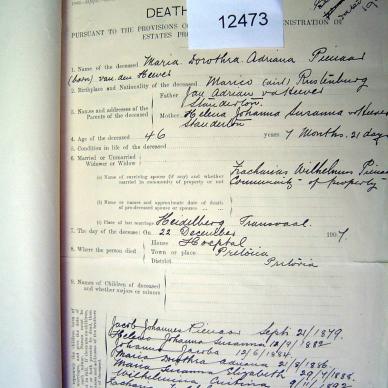 DEATH
12473
PURSUANT TO THE PROVISIONS CO ADMINISTRATION OF
ESTATES PRO
1. Name of the deceased Maria Dorothea Adriana Pienaar
(born) van den Heever
2. Birthplace and Nationality of the deceased Marico (dist) Rustenburg
3. Names and addresses of the Parents of the deceased
Father Jan Adriaan v d Heever
Standerton
Mother Helena Johanna Susanna v d Heever
Standerton
4. Age of the deceased 46 years 7 Months. 21 days
5. Condition in life of the deceased
6. Married or Unmarried
Widower or Widow
Zacharias Wilhelmus Pienaar
(a) Name of surviving spouse (if any) and whether
married in community of property or not
Community of property
(b) Name or names and approximate date of death
of pre-deceased spouse or spouses
(c) Place of last marriage Heidelberg Transvaal.
7. The day of the decease: On 22 December 1907.
8. Where the person died
House Hospital
Town or place Pretoria
District Pretoria
9. Names of Children of deceased
and whether majors or minors
Jacob Johannes Pienaar Sept. 21/1879.
Helena Johanna Susanna 12/9/1882
Johanna Jacoba 12/6/1884.
Maria Dorothea Adriana 21/8/1886
Susanna Elizabeth 29/4/1888.
Wilhelmina